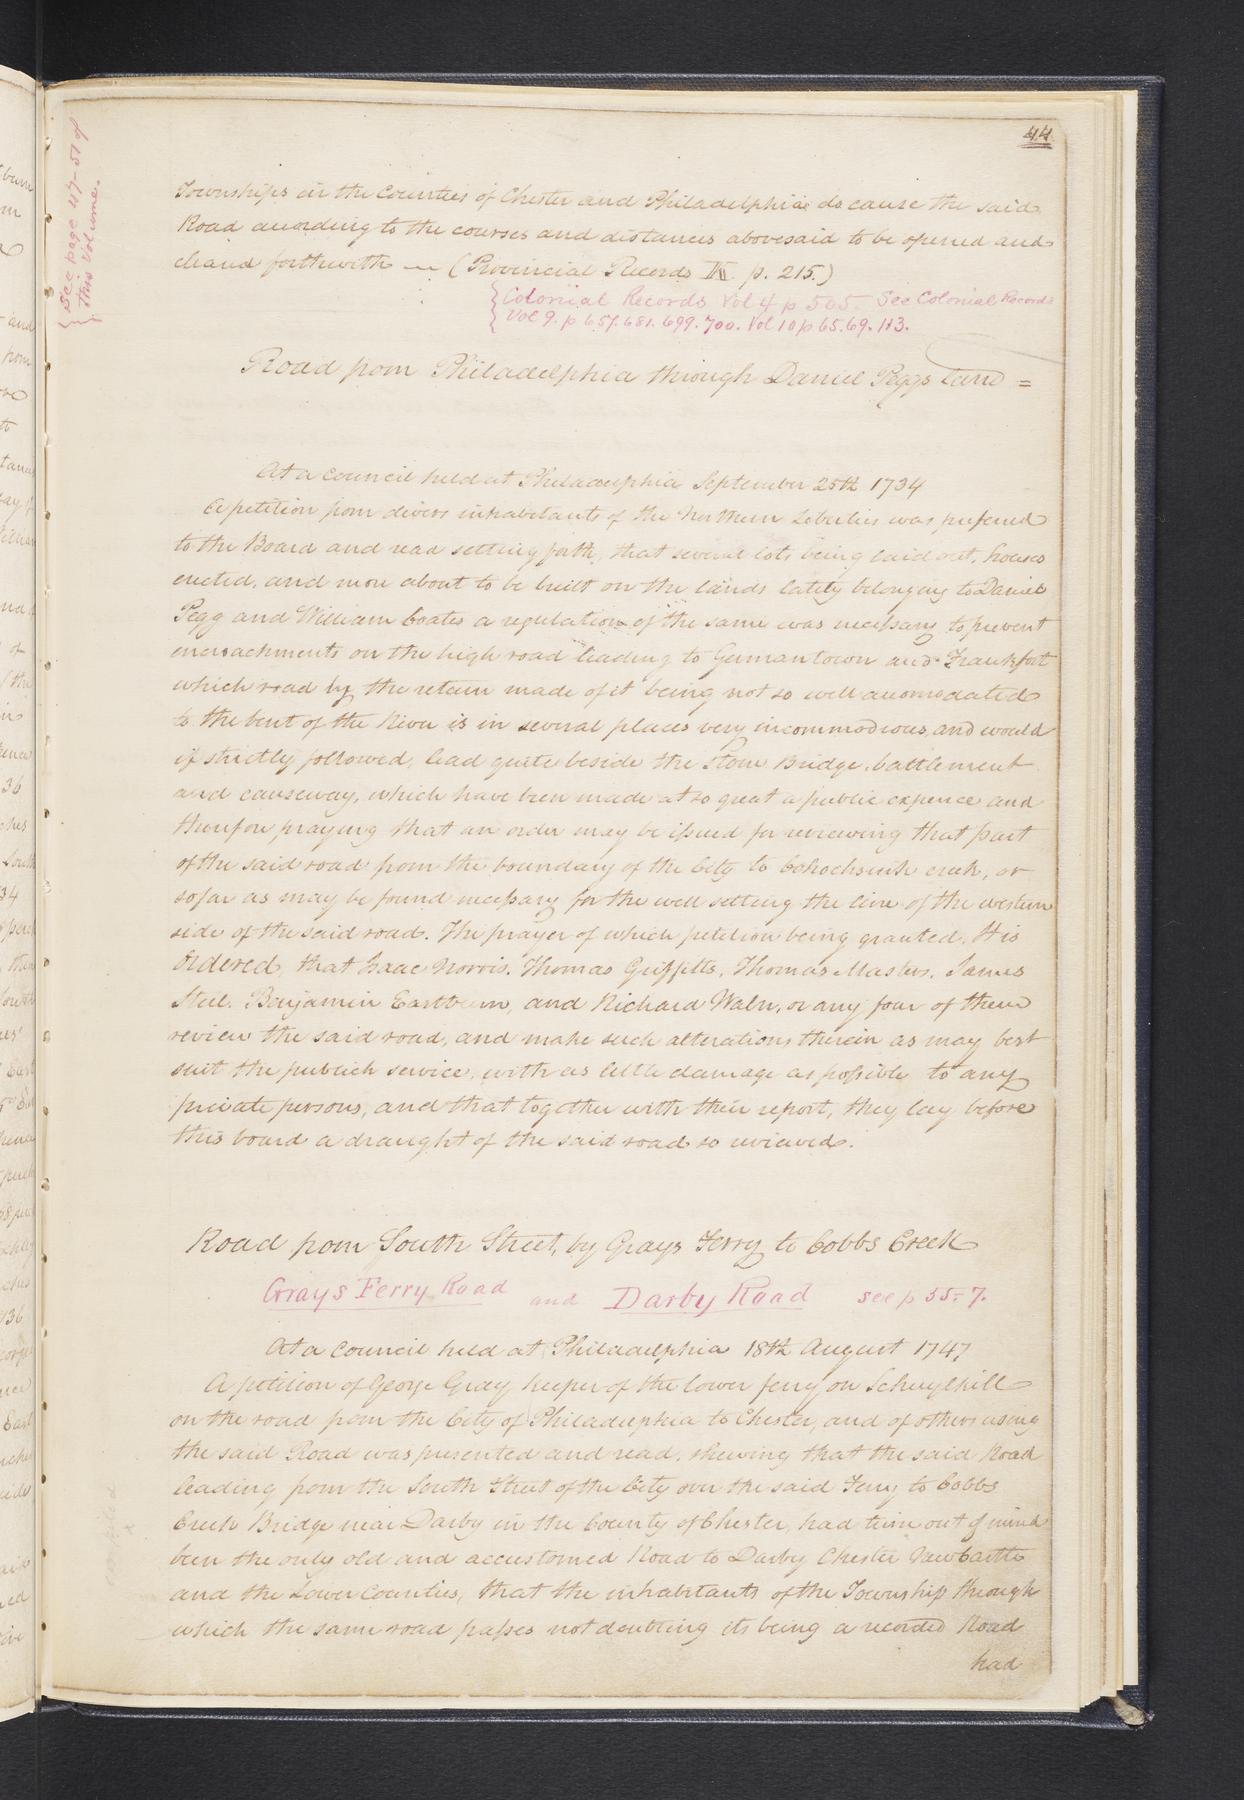 44
See page 47-51 of
this volume.
Townships in the Counties of Chester and Philadelphia do cause the said
Road according to the courses and distances abovesaid to be opened and
cleard forthwith — (Provincial Records p. 215.)
Colonial Records Vol 4 p 505. See Colonial Records
Vol 9. p 657. 681. 699. 700. Vol 10 p 65. 69. 113.
Road from Philadelphia through Daniel Peggs Land =
At a council held at Philadelphia September 25th 1734
A petition from divers inhabitants of the Northern Liberties was prefered
to the Board and read setting forth, that several lots being laid out, houses
erected, and more about to be built on the lands lately belonging to Daniel
Pegg and William Coates a regulation of the same was necessary to prevent
encroachments on the high road leading to Germantown and Frankfort
which road by the return made of it being not so well acomodated
to the bent of the River is in several places very incommodious, and would
if strictly followed, lead quite beside the Stone Bridge, battlement
and causeway, which have been made at so great a public expence and
therefore praying that an order may be issued for reviewing that part
of the said road from the boundary of the City to Cohochsink creek, or
so far as may be found necessary for the well setting the line of the western
side of the said road. The prayer of which petition being granted, It is
Ordered, that Isaac Norris, Thomas Griffitts, Thomas Masters, James
Steel, Benjamin Eastburn, and Richard Waln, or any four of them
review the said road, and make such alterations therein as may best
suit the publick service, with as little damage as possible to any
private persons, and that together with their report, they lay before
this board a draught of the said road so reviewed.
Road from South Street, by Grays Ferry to Cobbs Creek
Grays Ferry Road and Darby Road see p 55-7.
At a council held at Philadelphia 18th August 1747
A petition of George Gray keeper of the lower ferry on Schuylkill
on the road from the City of Philadelphia to Chester, and of others using
the said Road was presented and read, shewing that the said Road
leading from the South Street of the City over the said Ferry to Cobbs
Creek Bridge near Darby in the County of Chester, had time out of mind
been the only old and accustomed Road to Darby Chester Newcastle
and the Lower Counties, that the inhabitants of the Township through
which the same road passes not doubting its being a recorded Road
had